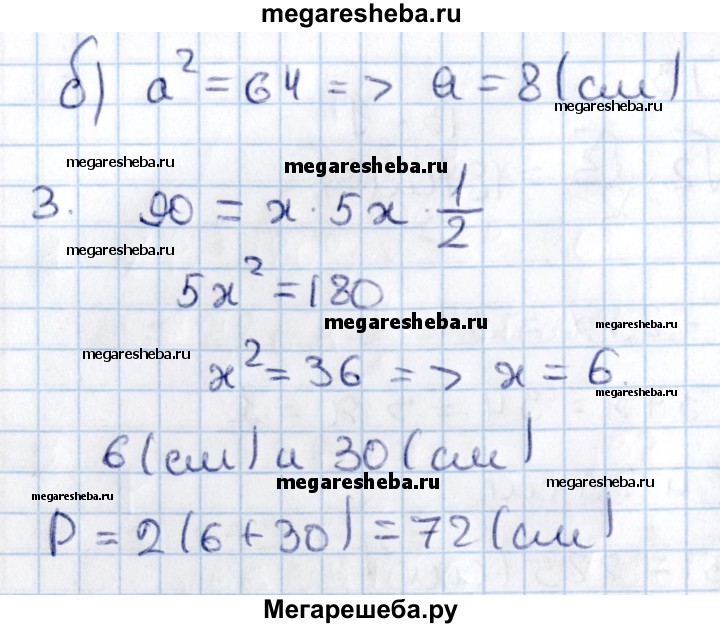 megaresheba.ru
б) a² = 64 => a = 8 (см)
megaresheba.ru
megaresheba.ru
megaresheba.ru
3. 90 = x · 5x · 1/2
megaresheba.ru
5x² = 180
megaresheba.ru
megaresheba.ru
megaresheba.ru
x² = 36 => x = 6.
megaresheba.ru
6 (см) и 30 (см)
megaresheba.ru
megaresheba.ru
megaresheba.ru
P = 2 (6 + 30) = 72 (см)
Мегарешеба.ру